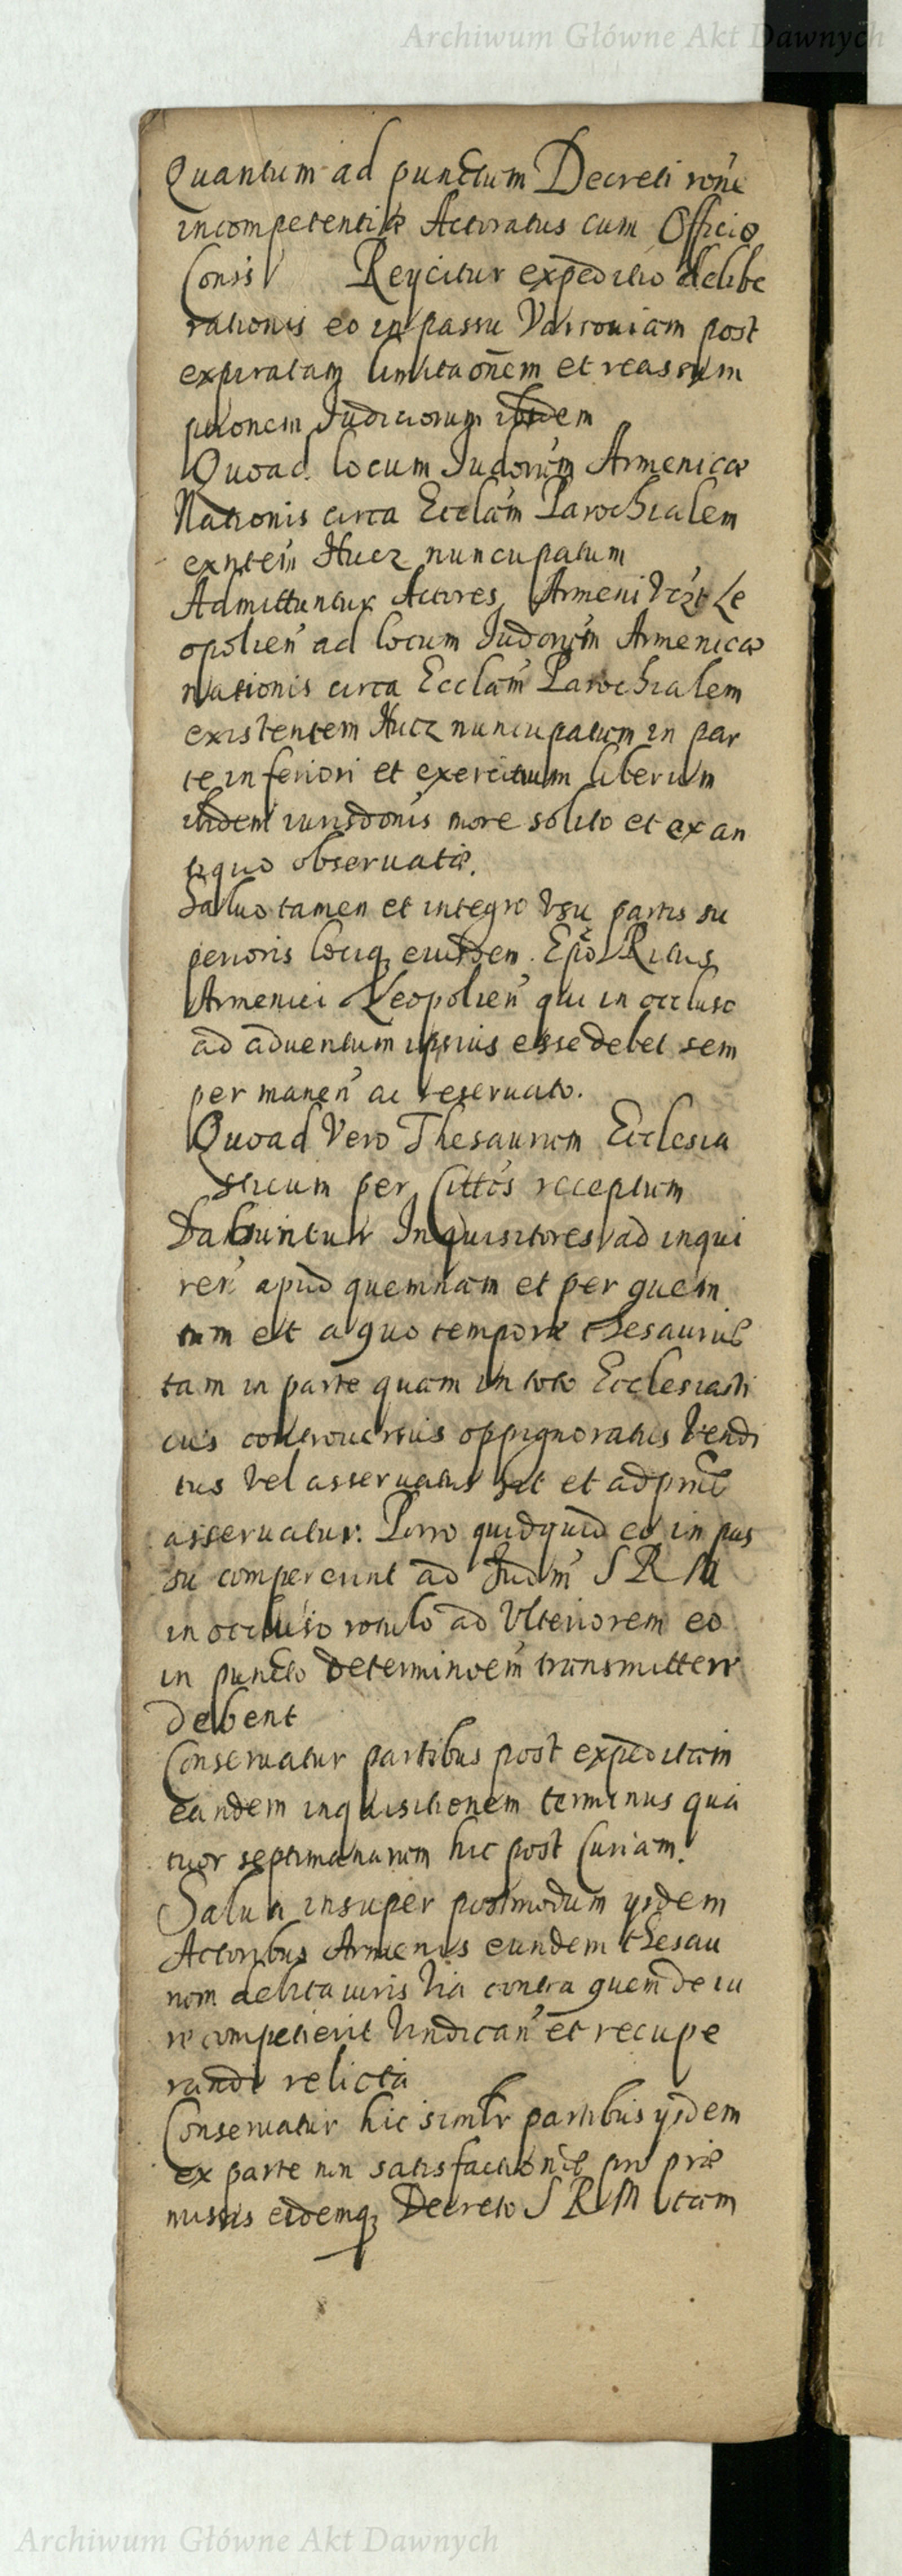 Archiwum Główne Akt Dawnych
Quantum ad punctum Decreti rõne
incompetentiæ Actoratus cum Officio
Consis Reycitur expeditio delibe
rationis eo in passu Varsouiam post
expiratam limitaõnem et reassum
ptionem Judiciorum ibidem
Quoad locum Judorum Armenicæ
Nationis circa Ecclãm Parochialem
exñtem Hucz nuncupatum
Admittuntur Actores Armeni Le
opolien ad locum Judorum Armenicæ
nationis circa Ecclãm Parochialem
existentem Hucz nuncupatum in par
te inferiori et exercitium liberum
ibidem iurisdõnis more solito et ex an
tiquo obseruatæ.
Saluo tamen et integro Vsu partis su
perioris lociq eiusdem Epõ Ritus
Armenici Leopolien qui in occluso
ad aduentum ipsius esse debet sem
per manen ac reseruato.
Quoad Vero Thesaurum Ecclesia
sticum per Cittos receptum
Dabuntur Inquisitores ad inqui
ren apud quemnam et per quem
tum et a quo tempore thesaurus
tam in parte quam in toto Ecclesiasti
cus controuersus oppignoratus Vendi
tus Vel asseruatus sit et ad pñs
asseruatur. Porro quidquid eo in pas
su compererint ad Judm S R M
in occluso rotulo ad Vlteriorem eo
in puncto determinõem transmittere
debent
Conseruatur partibus post expeditam
eandem inquisitionem terminus qua
tuor septimanarum hic post Curiam.
Salua insuper postmodum ysdem
Actoribus Armenis eundem thesau
rum debita iuris Via contra quem de iu
re competierit Vindican et recupe
randi relicta
Conseruatur hic simlr partibus ysdem
ex parte non satisfactionis pro præ
missis eidemq Decreto S R M tam
Archiwum Główne Akt Dawnych